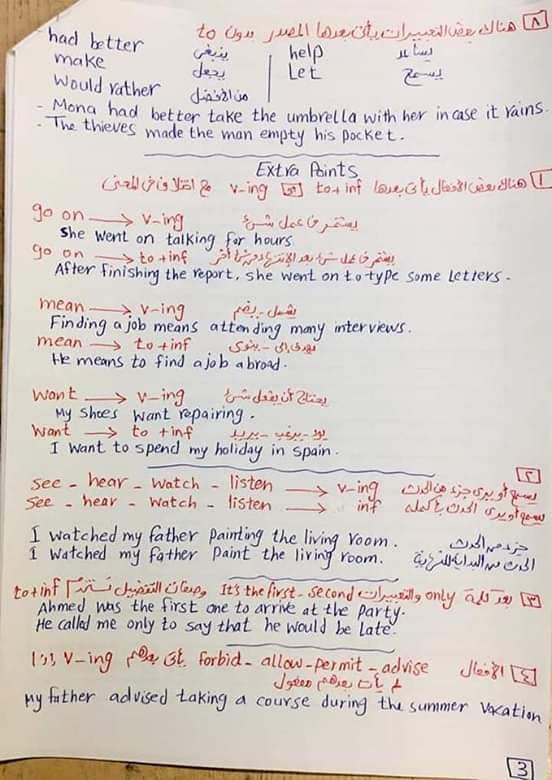 ٨ هناك بعض التعبيرات يأتى بعدها المصدر بدون to
had better ينبغى help يساعد
make يجعل Let يسمح
Would rather من الأفضل
- Mona had better take the umbrella with her in case it rains.
- The thieves made the man empty his pocket.
Extra Points
١ هناك بعض الأفعال يأتى بعدها to + inf أو v-ing مع اختلاف فى المعنى
go on → v-ing يستمر فى عمل شئ
She went on talking for hours
go on → to + inf يستمر فى عمل شئ بعد الإنتهاء من شئ آخر
After finishing the report, she went on to type some letters.
mean → v-ing يشمل - يضم
Finding a job means attending many interviews.
mean → to + inf يهدف إلى - ينوى
He means to find a job abroad.
want → v-ing يحتاج أن يفعل شئ
My shoes want repairing.
want → to + inf يود - يرغب - يريد
I want to spend my holiday in Spain.
٢
see - hear - watch - listen → v-ing يسمع أو يرى جزء من الحدث
see - hear - watch - listen → inf يسمع أو يرى الحدث بأكمله
I watched my father painting the living room. جزء من الحدث
I watched my father paint the living room. الحدث من البداية للنهاية
٣ بعد كلمة only والتعبيرات It's the first - second وصفات التفضيل نستخدم to + inf
Ahmed was the first one to arrive at the party.
He called me only to say that he would be late.
٤ الأفعال forbid - allow - permit - advise يأتى بعدهم v-ing إذا
لم يأت بعدهم مفعول
My father advised taking a course during the summer vacation
3